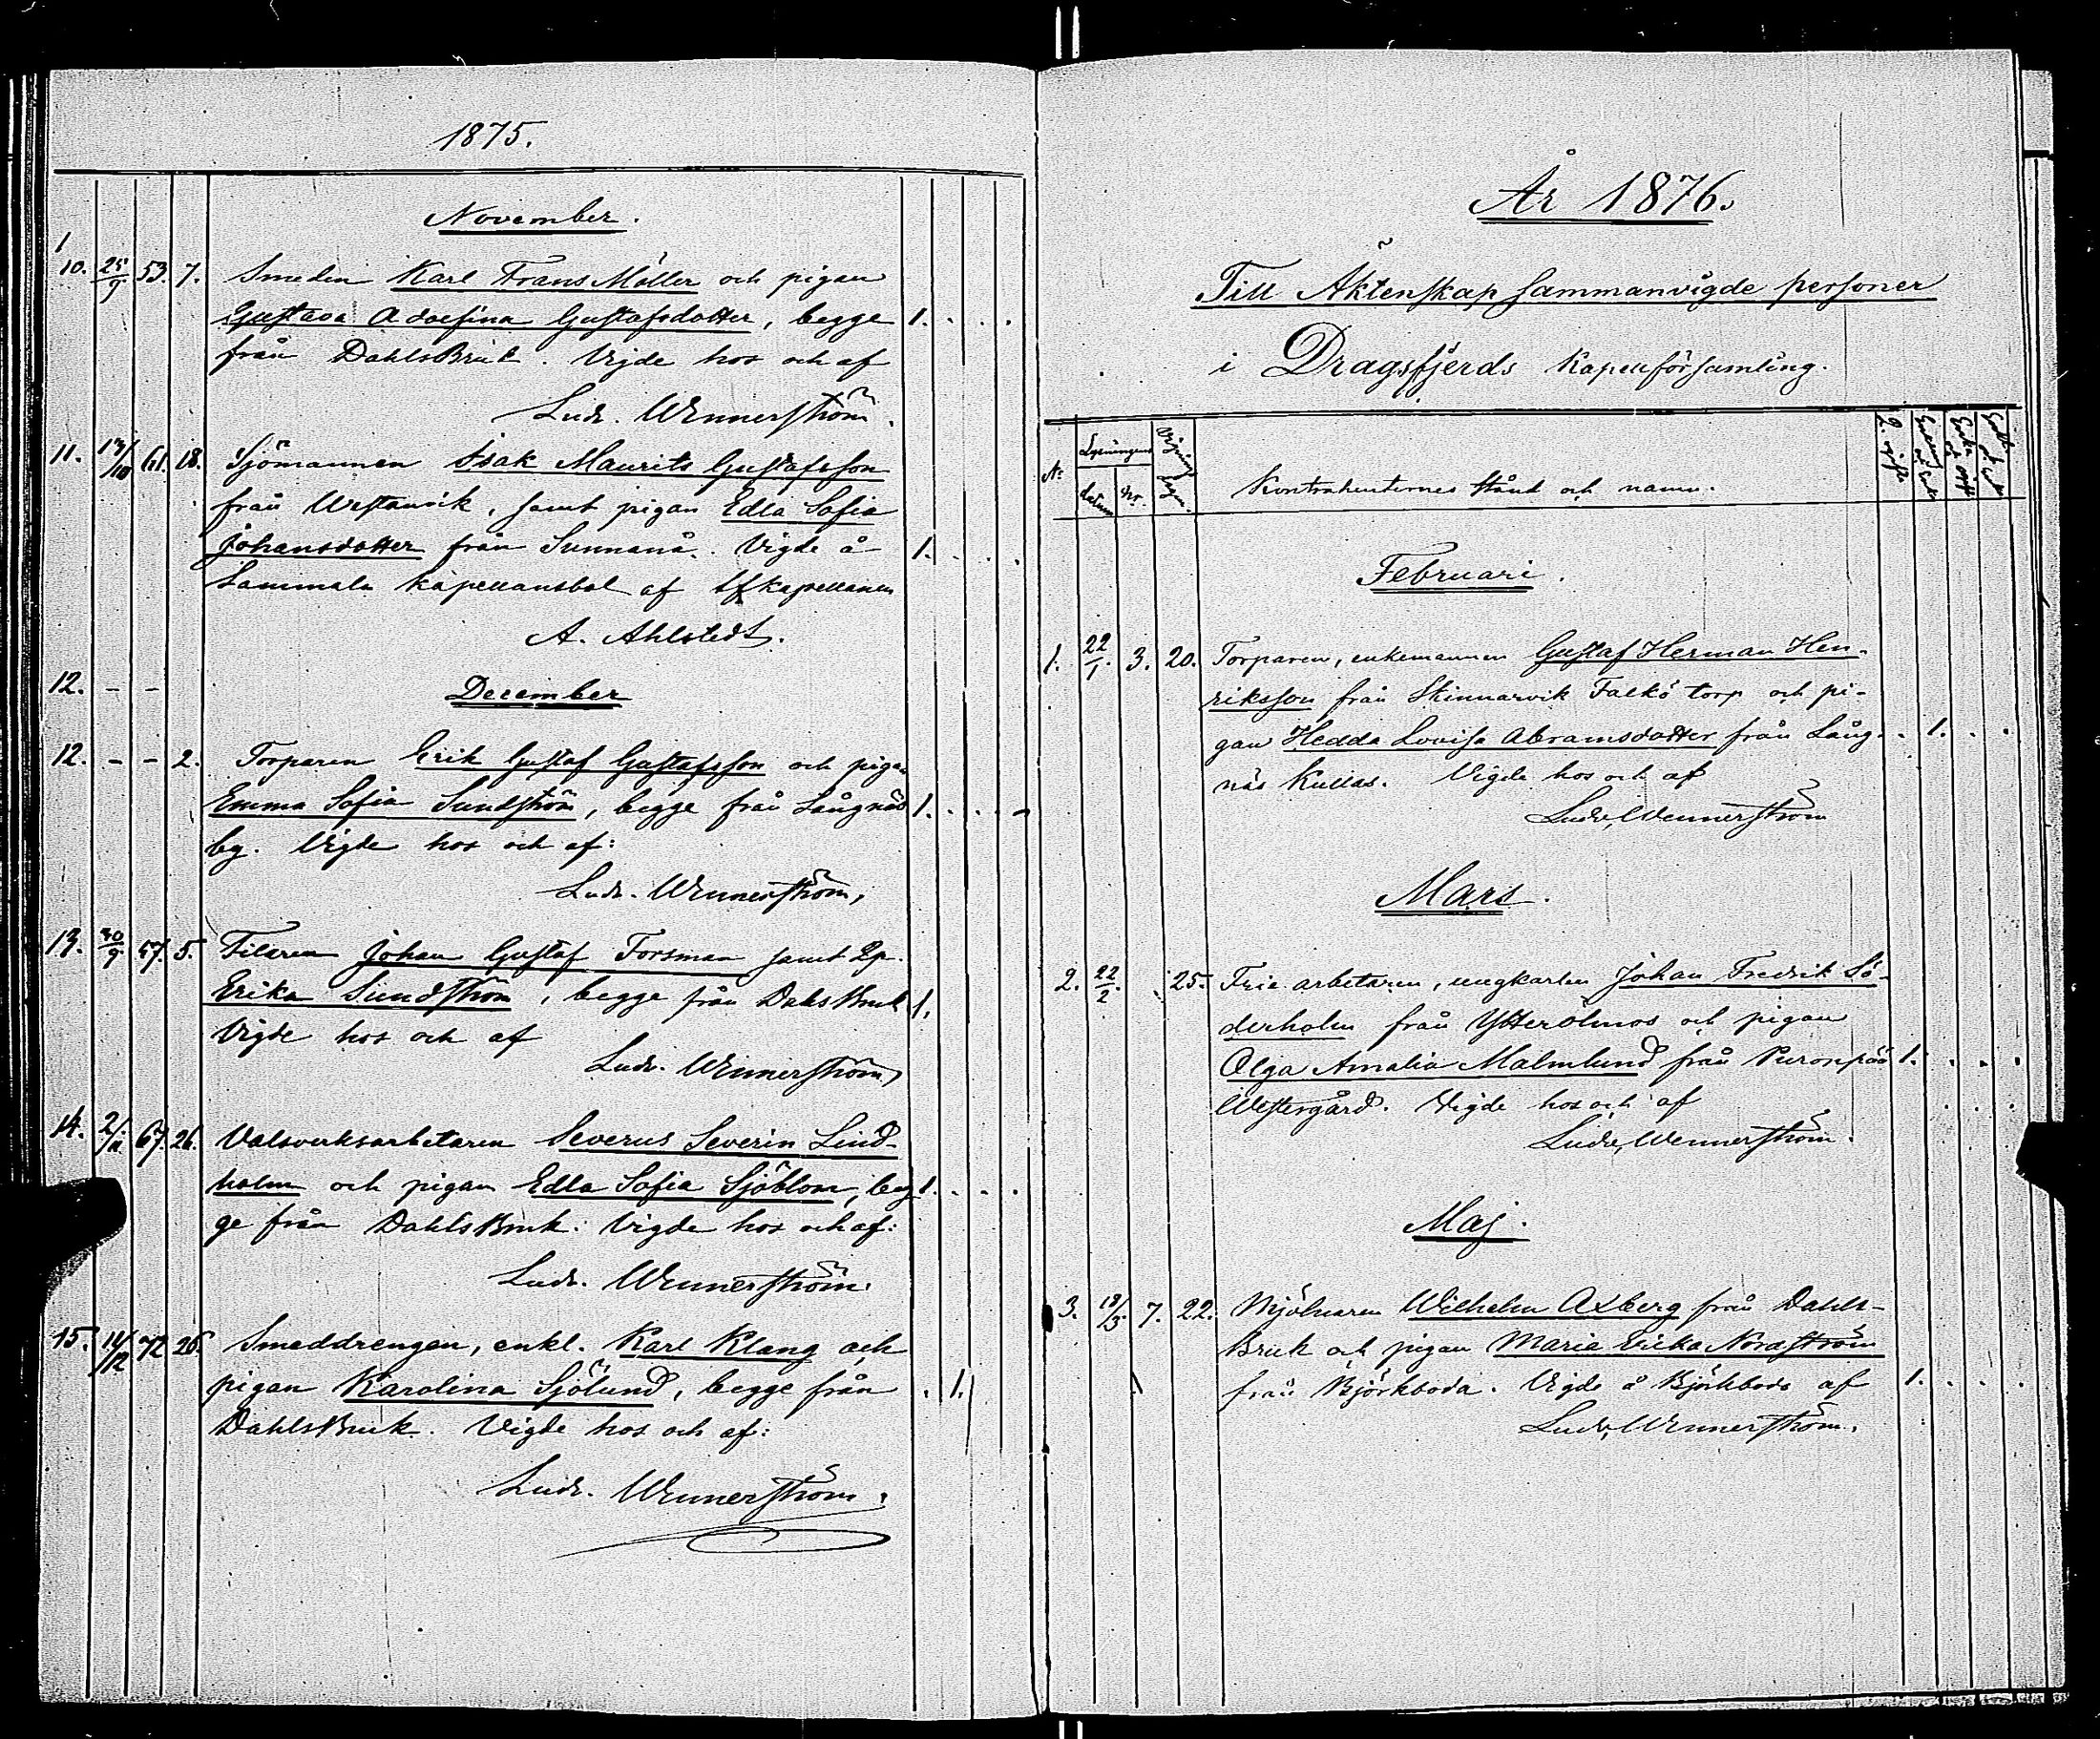 1875.
November.
10. 25/9. 53. 7. Smeden Karl Frans Möller och pigan
Gustava Adolfina Gustafsdotter, begge 1.
från DahlsBruk. Vigde hos och af
Ludv. Wennerström.
11. 17/10 61. 18. Sjömannen Isak Maurits Gustafsson
från Westanvik, samt pigan Edla Sofia
Johansdotter från Sunnanå. Vigde å 1.
Lammala kapellansbol af kapellanen
A. Ahlstedt.
12. - - December
12. - - 2. Torparen Erik Gustaf Gustafsson och pigan
Emma Sofia Sundström, begge från Långnäs 1.
by. Vigde hos och af:
Ludv. Wennerström,
13. 30/9. 57. 5. Filaren Johan Gustaf Forsman samt
Erika Sundström, begge från Dahls Bruk 1.
Vigde hos och af
Ludv. Wennerström,
14. 67. 26. Valsverksarbetaren Severus Severin Lind-
holm och pigan Edla Sofia Sjöblom, beg- 1.
ge från DahlsBruk. Vigde hos och af:
Ludv. Wennerström.
15. 14/12 72 26. Smeddrengen, enkl. Karl Klang och
pigan Karolina Sjölund, begge från . 1.
DahlsBruk. Vigde hos och af:
Ludv. Wennerström.
År 1876.
Till Äktenskap sammanvigde personer
i Dragsfjerds Kapellförsamling.
No Lysningens datum No. Vignings dagen. Kontrahenternes stånd och namn. 2. ogifte
Februari.
1. 22/1. 3. 20. Torparen, enkemannen Gustaf Herman Hen-
riksson från Skinnarvik Falkö torp och pi-
gan Hedda Lovisa Abramsdotter från Lång- . 1.
näs Kullas. Vigde hos och af
Ludv. Wennerström
Mars.
2. 22/2. 25. Frie arbetaren, ungkarlen Johan Fredrik Sö-
derholm från Ytterölmos och pigan
Olga Amalia Malmlund från Puronpää 1.
Westergård. Vigde hos och af
Ludv. Wennerström.
Maj.
3. 18/3. 7. 22. Mjölnaren Wilhelm Axberg från Dahls-
Bruk och pigan Maria Erika Nordström
från Björkboda. Vigde å Björkboda af 1.
Ludv. Wennerström.